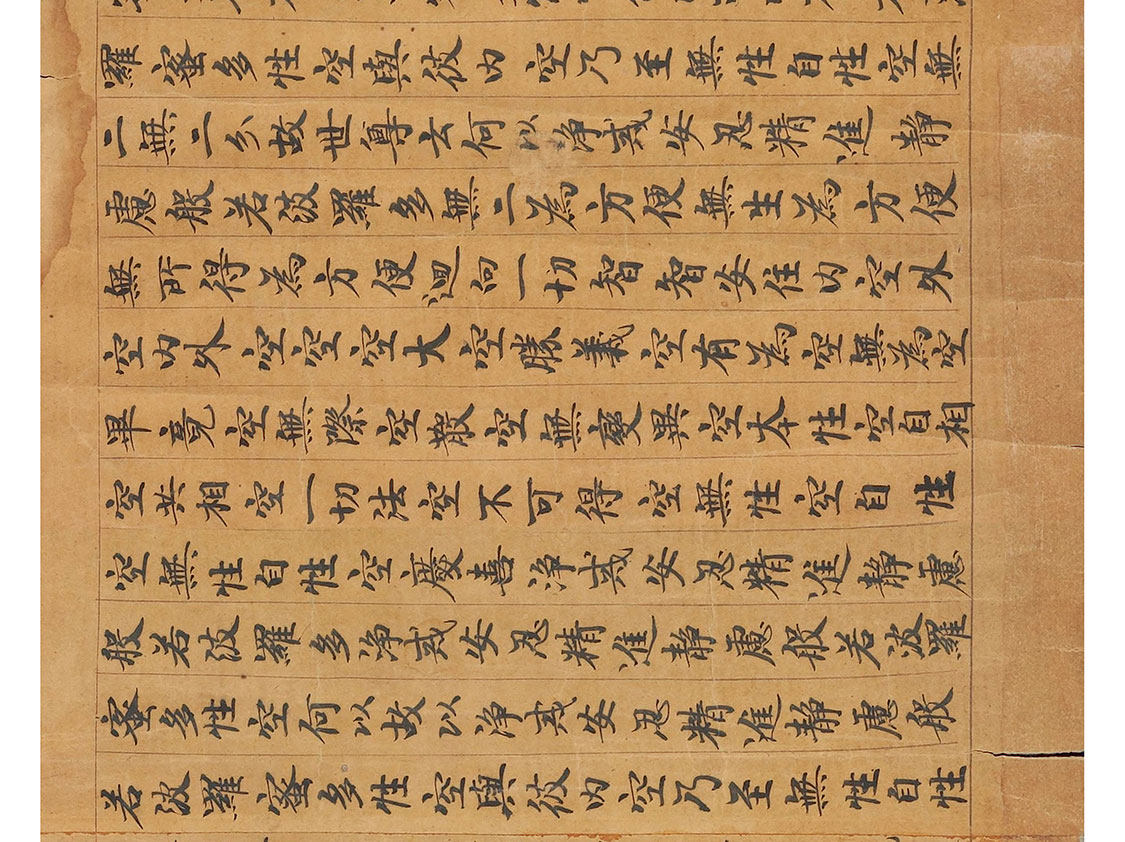 羅蜜多性空與彼內空乃至無性自性空無
二無二分故世尊云何以淨戒安忍精進靜
慮般若波羅多無二為方便無生為方便
無所得為方便迴向一切智智安住內空外
空內外空空空大空勝義空有為空無為空
畢竟空無際空散空無變異空本性空自相
空共相空一切法空不可得空無性空自性
空無性自性空慶喜淨戒安忍精進靜慮
般若波羅多淨戒安忍精進靜慮般若波羅
蜜多性空何以故以淨戒安忍精進靜慮般
若波羅蜜多性空與彼內空乃至無性自性